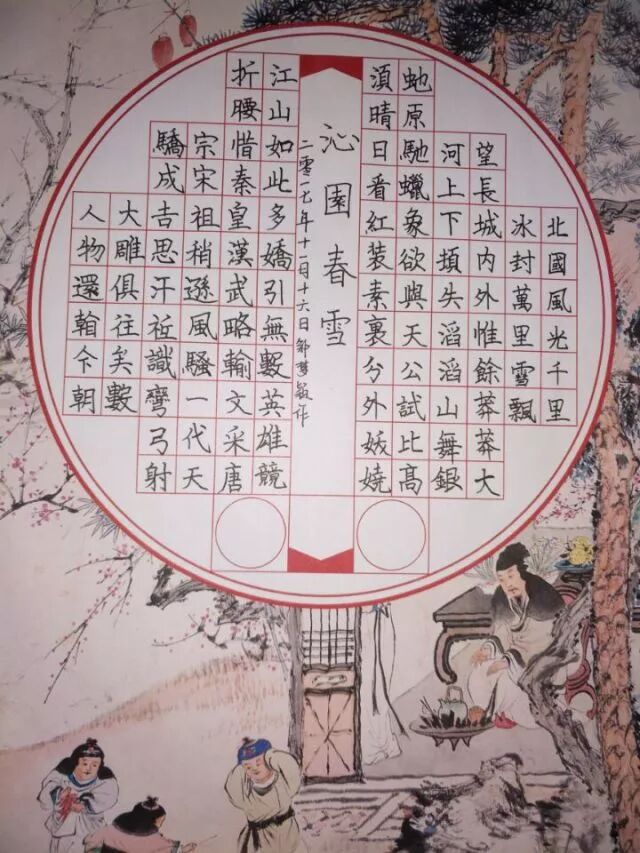 北國風光千里
冰封萬里雪飄
望長城内外惟餘莽莽大
河上下頓失滔滔山舞銀
虵原馳蠟象欲與天公試比髙
湏晴日看紅装素裹分外妖嬈
沁園春雪
二零一七年十一月十六日 作
江山如此多嬌引無數英雄競
折腰惜秦皇漢武略輸文采唐
宗宋祖稍遜風騷一代天
驕成吉思汗祗識彎弓射
大雕俱往矣數
人物還翰今朝